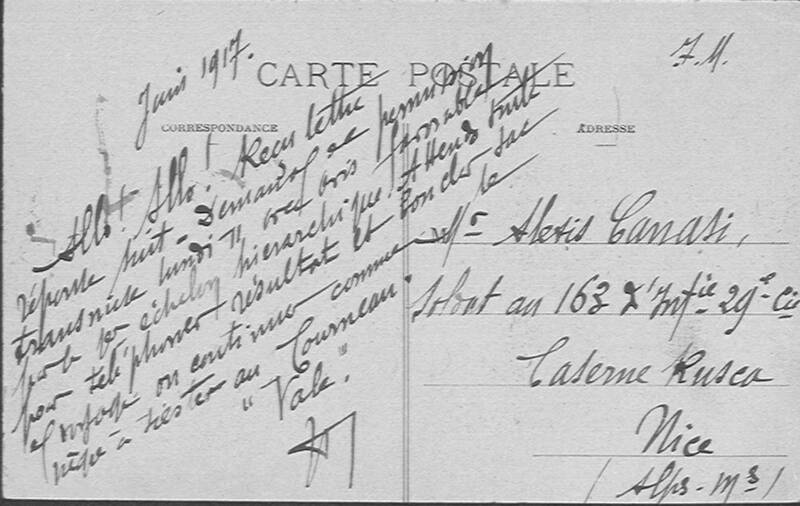 Juin 1917.
F.M.
CARTE POSTALE
CORRESPONDANCE
ADRESSE
Allo! Allo! Reçu lettre
réponse suit - Demande de permission
transmise lundi 11 avec avis favorable
par le 1er échelon hiérarchique. Attends suite
pour téléphoner résultat et boucler sac
et voyage on continuer comme le
nègre à rester au Courneau.
" Vale. "
Mr Alexis Canasi,
Soldat au 163 d'Inftie 29e Cie
Caserne Rusca
Nice
(Alpes-Mmes)